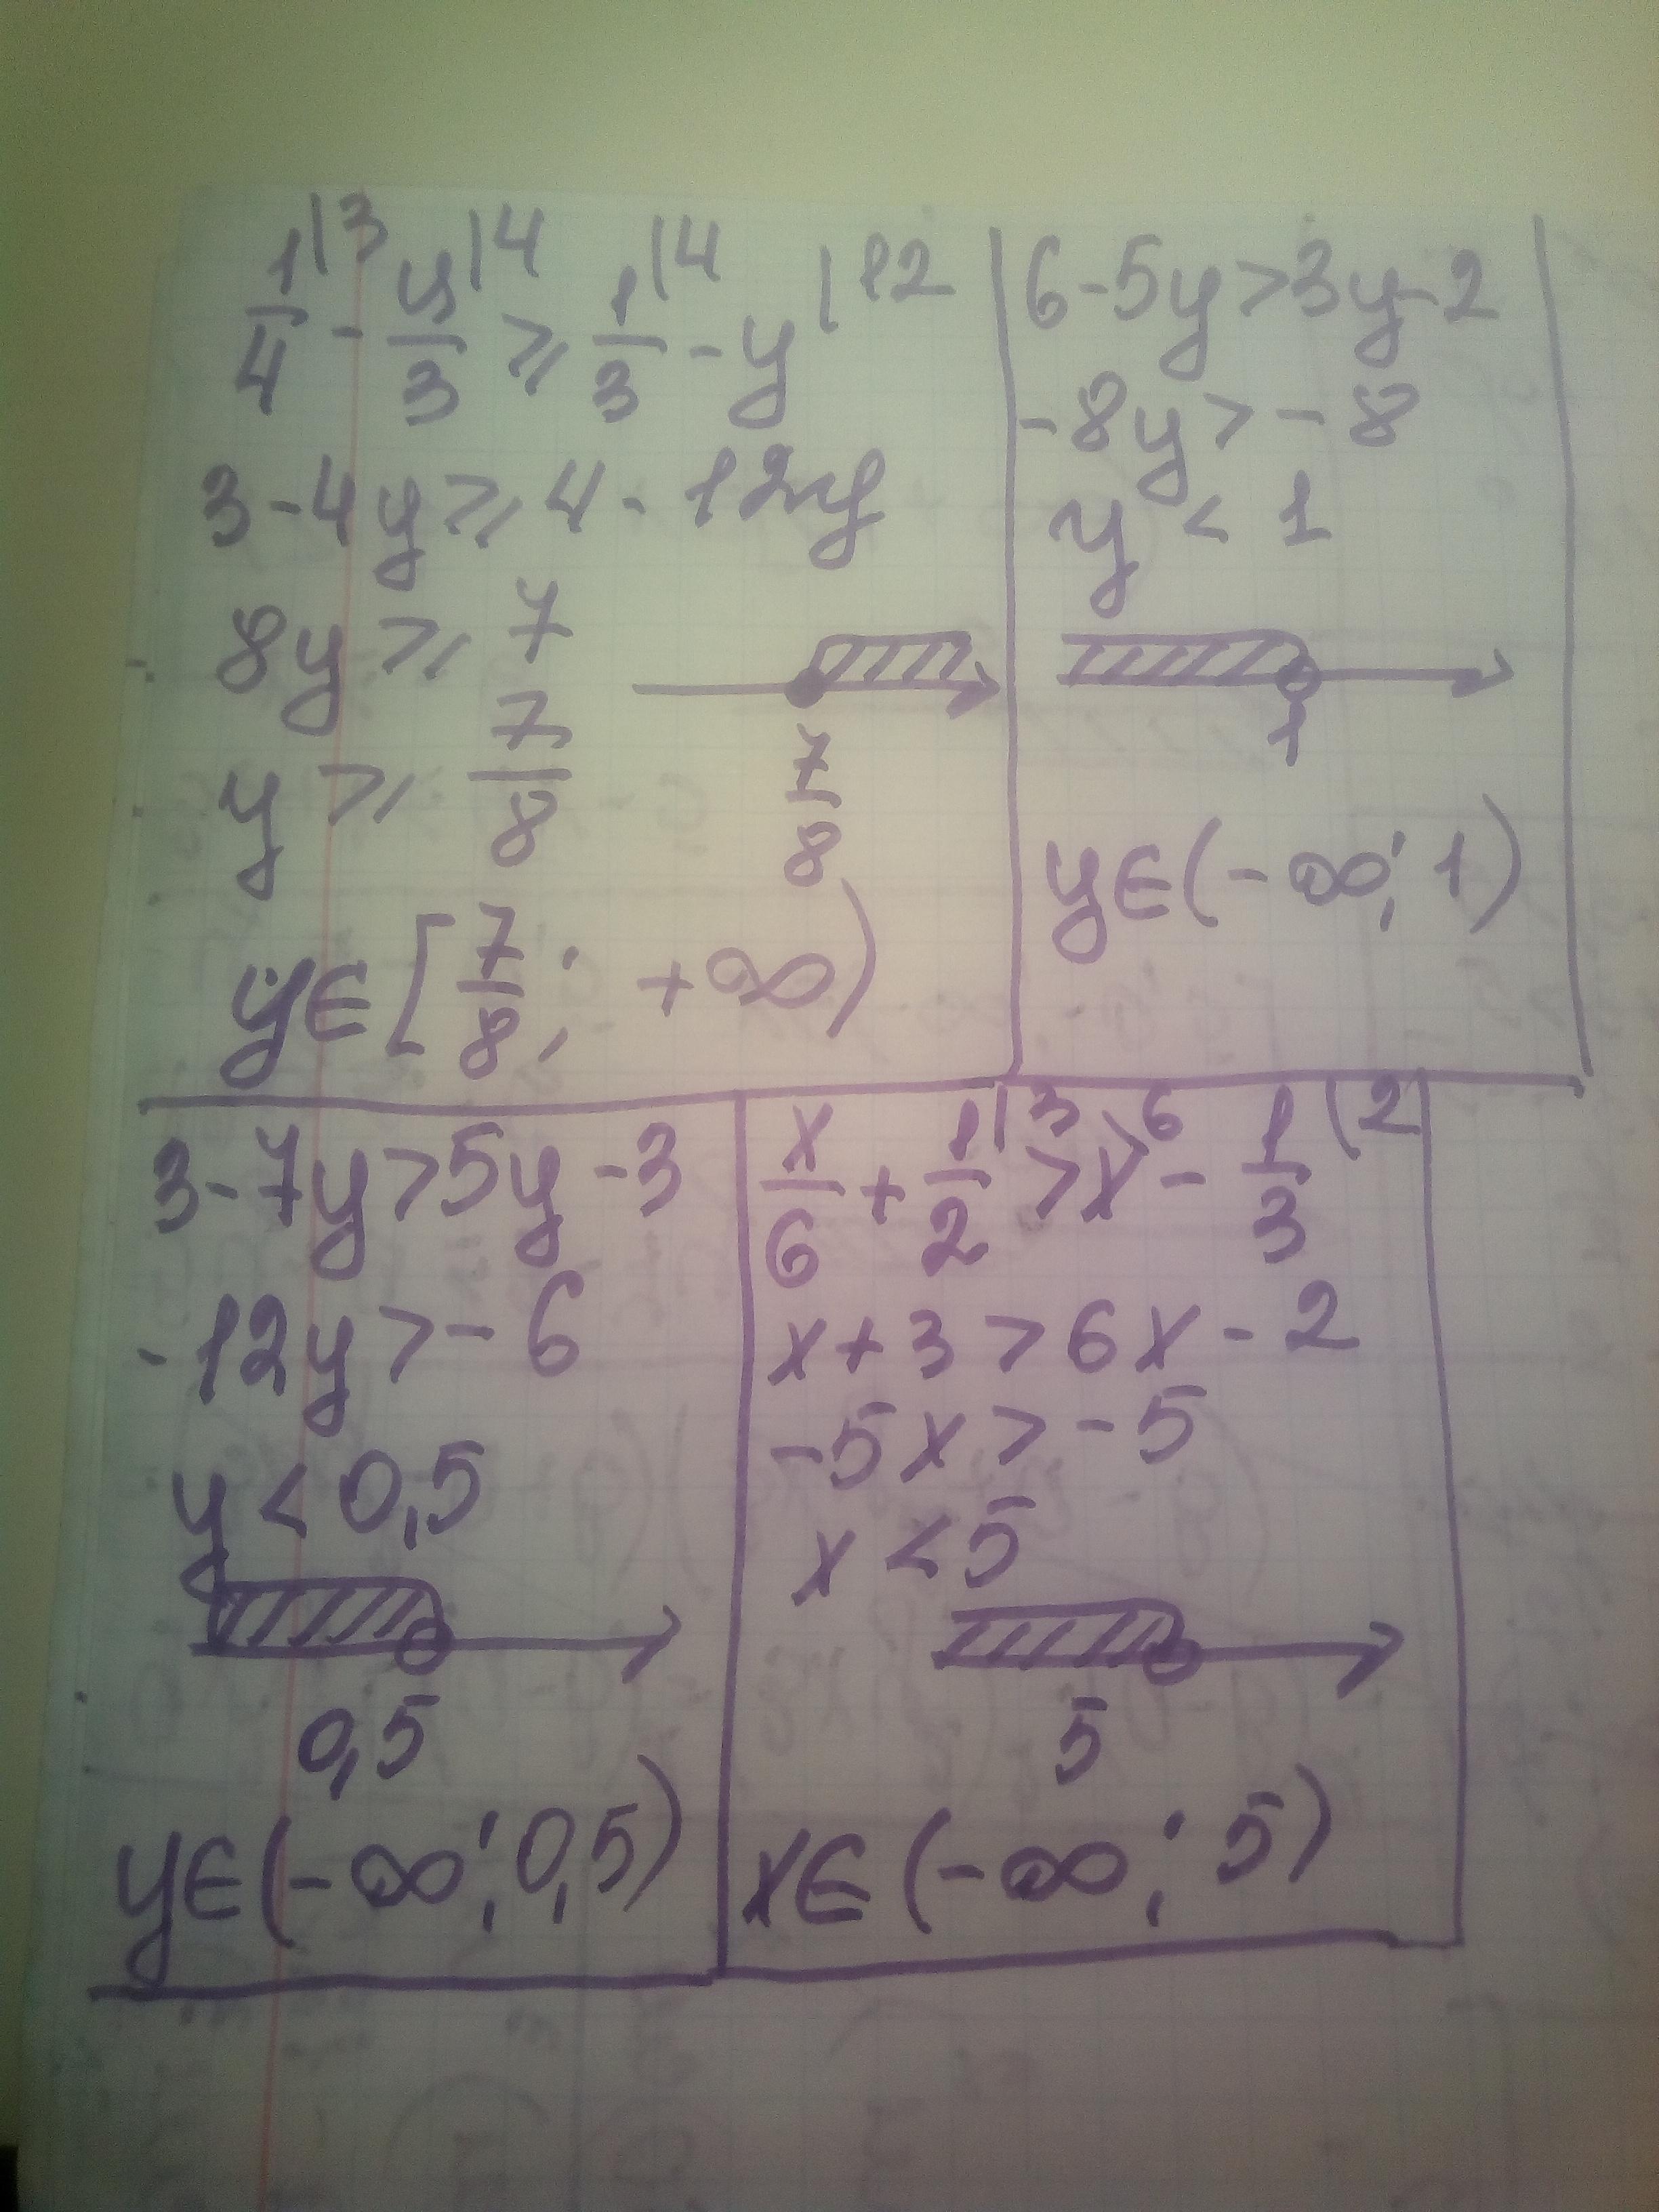 1/4 |3 - y/3 |4 ⩾ 1/3 |4 - y |12
3 - 4y ⩾ 4 - 12y
8y ⩾ 7
y ⩾ 7/8
7/8
y∈[7/8; +∞)
6-5y>3y-2
-8y>-8
y<1
1
y∈(-∞;1)
3-7y>5y-3
-12y>-6
y<0,5
0,5
y∈(-∞;0,5)
x/6 + 1/2 |3 > x |6 - 1/3 |2
x+3>6x-2
-5x>-5
x<5
5
x∈(-∞;5)